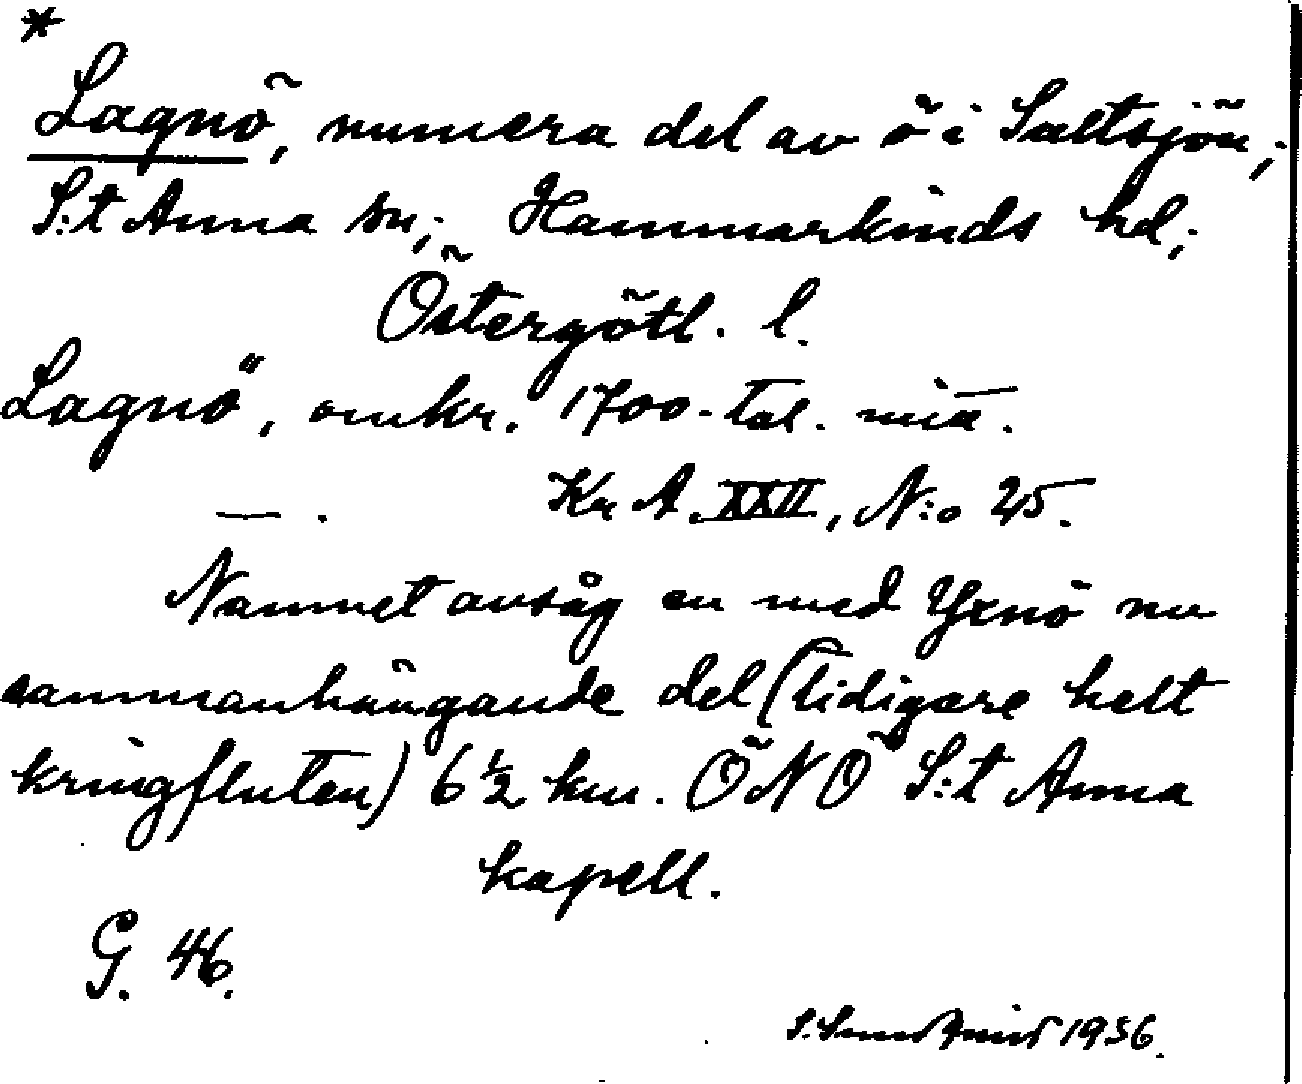 *
Lagnö, numera del av ö i Saltsjön;
S:t Anna sn; Hammarkinds hd;
Östergötl. l.
Lagnö, omkr. 1700-tal. mia.
— . Kr A. XXII, N:o 25.
Namnet avsåg en med Yxnö nu
sammanhängande del (tidigare helt
kringfluten) 6 ½ km. ÖNÖ S:t Anna
kapell.
G. 46.
S. 1936.